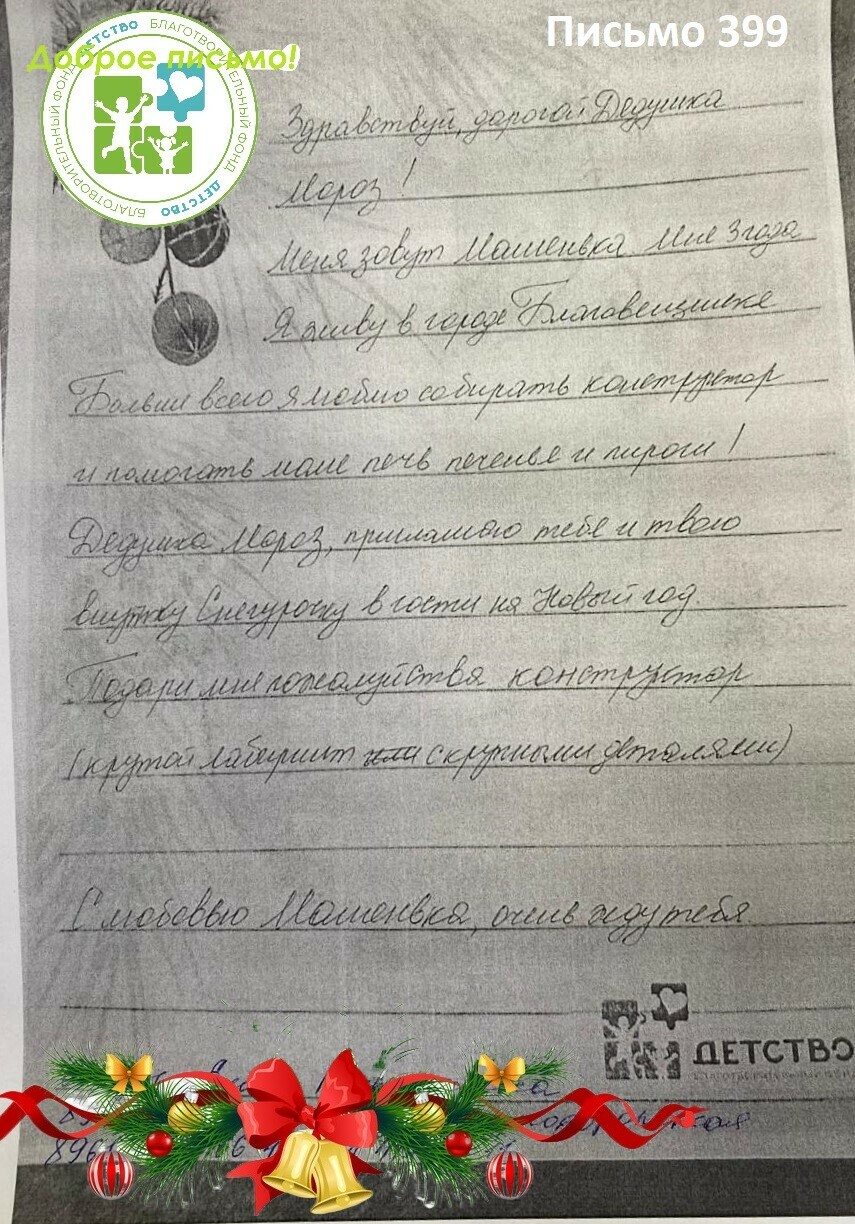 Письмо 399
Доброе письмо!
БЛАГОТВОРИТЕЛЬНЫЙ ФОНД ДЕТСТВО БЛАГОТВОРИТЕЛЬНЫЙ ФОНД ДЕТСТВО
Здравствуй, дорогой Дедушка
Мороз!
Меня зовут Машенька. Мне 3 года
Я живу в городе Благовещенске
Больше всего я люблю собирать конструктор
и помогать маме печь печенье и пироги!
Дедушка Мороз, приглашаю тебе и твою
внучку Снегурочку в гости на Новый год.
Подари мне пожалуйства конструктор
(крутой лабиринт или с крупными деталями)
С любовью Машенька, очень жду тебя
ДЕТСТВО